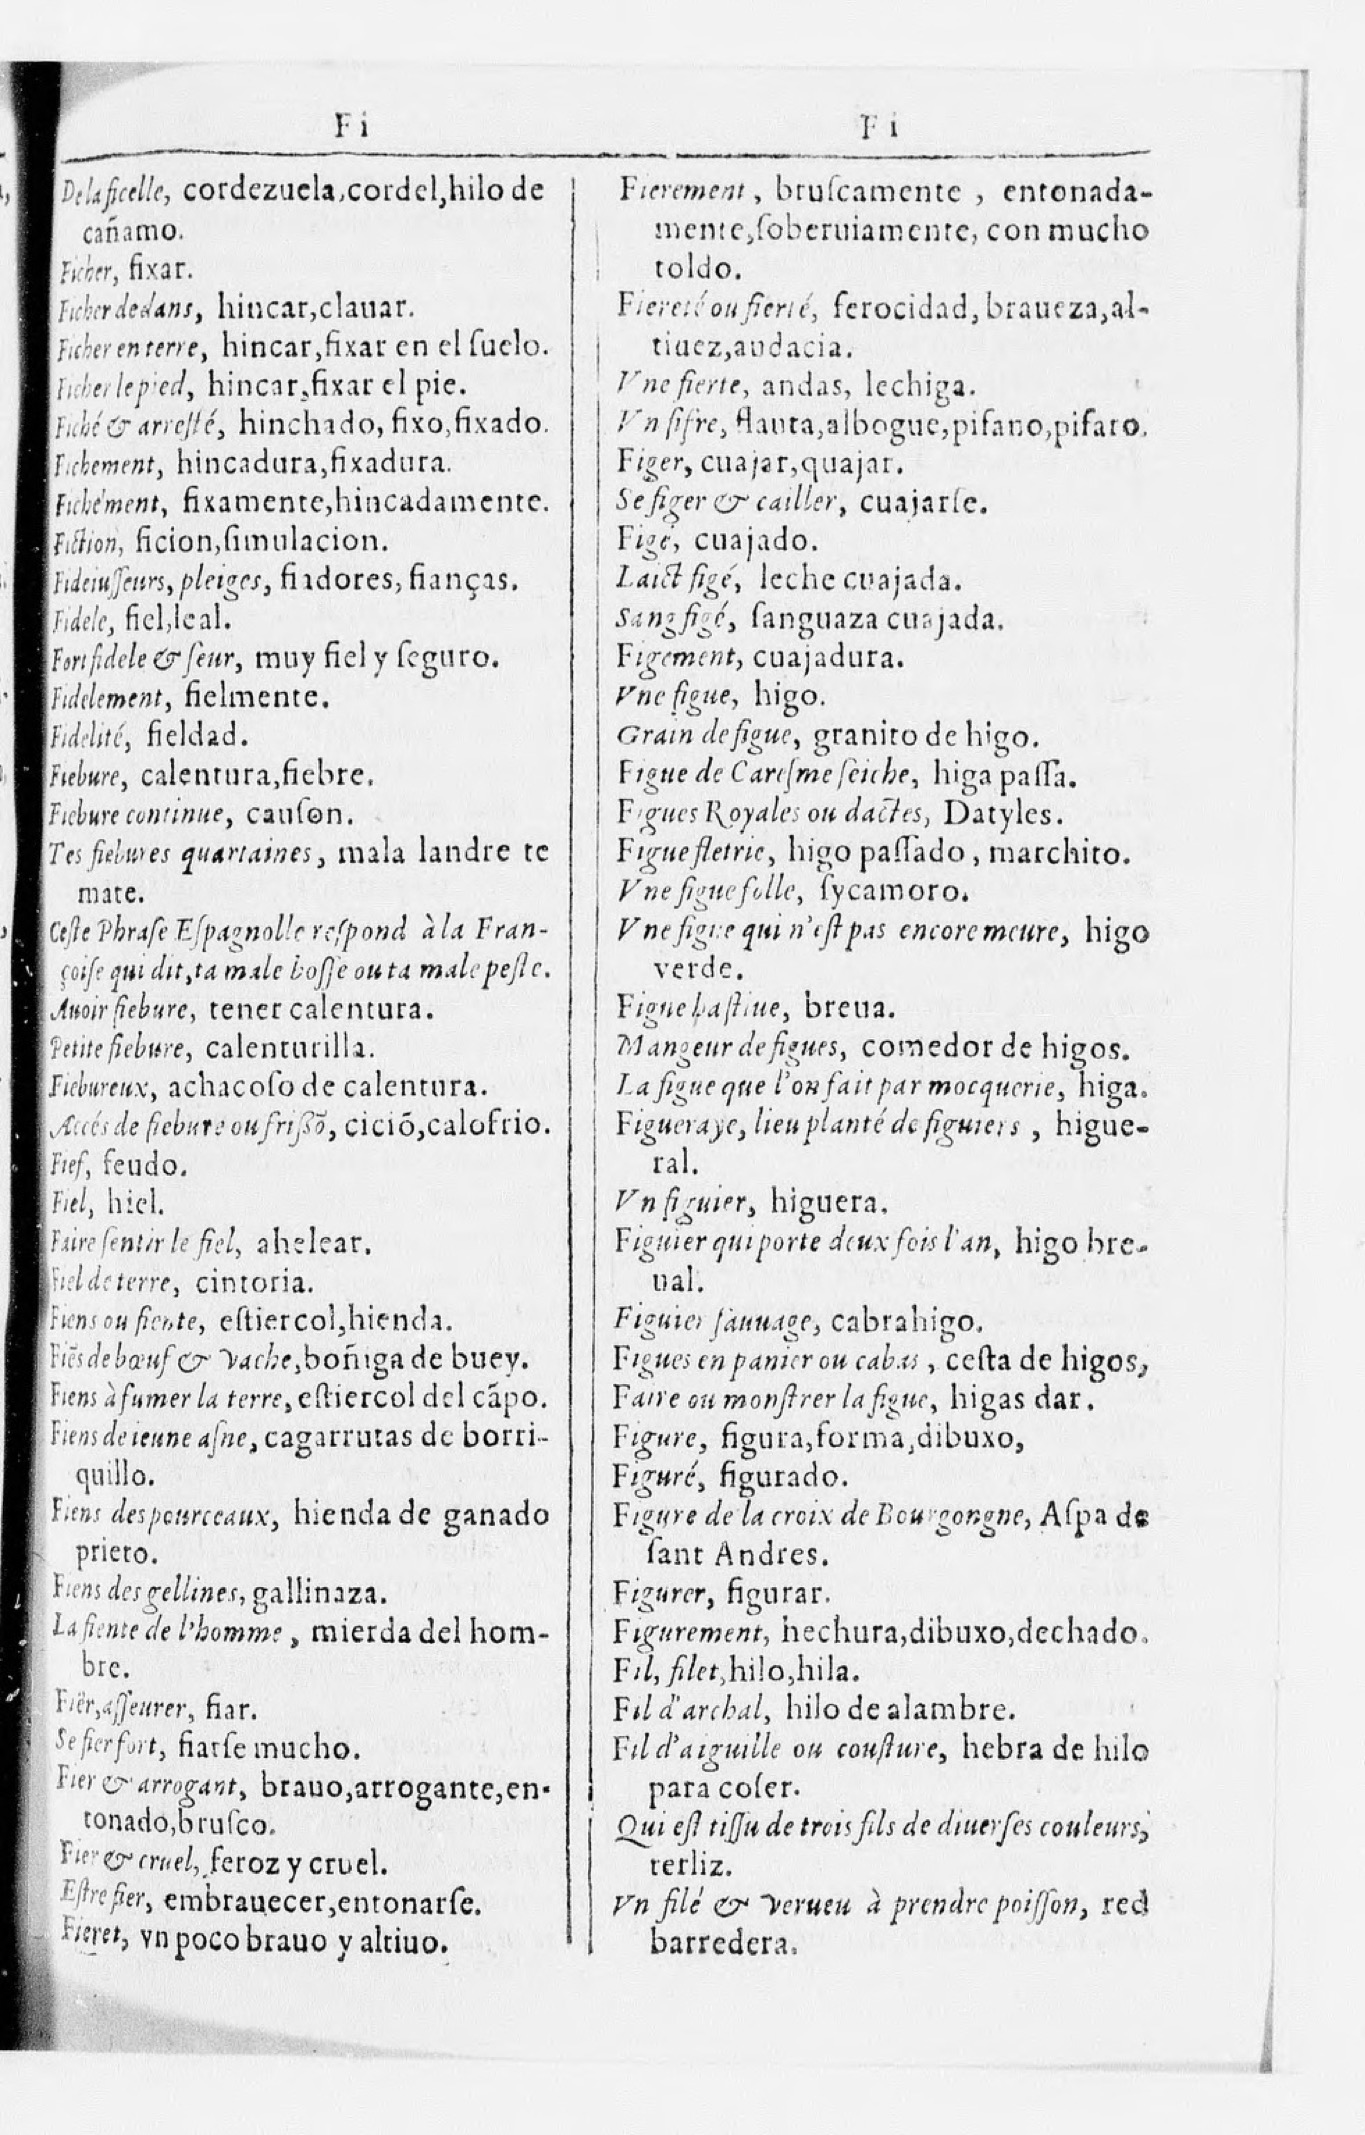 Fi
De la ficelle, cordezuela, cordel, hilo de
cañamo.
Ficher, fixar.
Ficher dedans, hincar, clauar.
Ficher en terre, hincar, fixar en el ſuelo.
Ficher le pied, hincar, fixar el pie.
Fiché & arreſté, hinchado, fixo, fixado.
Fichement, hincadura, fixadura.
Fichément, fixamente, hincadamente.
Fiction, ficion, ſimulacion.
Fideiuſſeurs, pleiges, fiadores, fianças.
Fidele, fiel, leal.
Fort fidele & ſeur, muy fiel y ſeguro.
Fidelement, fielmente.
Fidelité, fieldad.
Fiebure, calentura, fiebre.
Fiebure continue, cauſon.
Tes fiebures quartaines, mala landre te
mate.
Ceſte Phraſe Eſpagnolle reſpond à la Fran-
çoiſe qui dit, ta male boſſe ou ta male peſte.
Auoir fiebure, tener calentura.
Petite fiebure, calenturilla.
Fiebureux, achacoſo de calentura.
Accés de fiebure ou friſſõ, ciciõ, calofrio.
Fief, feudo.
Fiel, hiel.
Faire ſentir le fiel, ahelear.
Fiel de terre, cintoria.
Fiens ou fiente, eſtiercol, hienda.
Fiẽs de bœuf & vache, boñiga de buey.
Fiens à fumer la terre, eſtiercol del cãpo.
Fiens de ieune aſne, cagarrutas de borri-
quillo.
Fiens des pourceaux, hienda de ganado
prieto.
Fiens des gellines, gallinaza.
La fiente de l'homme, mierda del hom-
bre.
Fiër, aſſeurer, fiar.
Se fier fort, fiarſe mucho.
Fier & arrogant, brauo, arrogante, en-
tonado, bruſco.
Fier & cruel, feroz y cruel.
Eſtre fier, embrauecer, entonarſe.
Fieret, vn poco brauo y altiuo.
Fi
Fierement, bruſcamente, entonada-
mente, ſoberuiamente, con mucho
toldo.
Fiereté ou fierté, ferocidad, braueza, al-
tiuez, audacia.
Vne fierte, andas, lechiga.
Vn fifre, flauta, albogue, pifano, pifaro.
Figer, cuajar, quajar.
Se figer & cailler, cuajarſe.
Figé, cuajado.
Laict figé, leche cuajada.
Sang figé, ſanguaza cuajada.
Figement, cuajadura.
Vne figue, higo.
Grain de figue, granito de higo.
Figue de Careſme ſeiche, higa paſſa.
Figues Royales ou dactes, Datyles.
Figue fletrie, higo paſſado, marchito.
Vne figue folle, ſycamoro.
Vne figue qui n'eſt pas encore meure, higo
verde.
Figue haſtiue, breua.
Mangeur de figues, comedor de higos.
La figue que l'on fait par mocquerie, higa.
Figueraye, lieu planté de figuiers, higue-
ral.
Vn figuier, higuera.
Figuier qui porte deux fois l'an, higo bre-
ual.
Figuier ſauuage, cabrahigo.
Figues en panier ou cabas, ceſta de higos,
Faire ou monſtrer la figue, higas dar.
Figure, figura, forma, dibuxo,
Figuré, figurado.
Figure de la croix de Bourgongne, Aſpa de
ſant Andres.
Figurer, figurar.
Figurement, hechura, dibuxo, dechado.
Fil, filet, hilo, hila.
Fil d'archal, hilo de alambre.
Fil d'aiguille ou couſture, hebra de hilo
para coſer.
Qui eſt tiſſu de trois fils de diuerſes couleurs,
terliz.
Vn filé & verueu à prendre poiſſon, red
barredera.